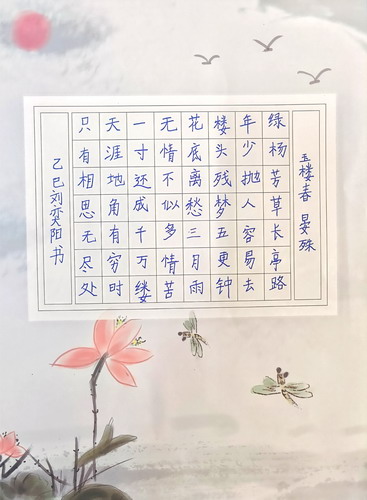 玉楼春 晏殊
绿杨芳草长亭路
年少抛人容易去
楼头残梦五更钟
花底离愁三月雨
无情不似多情苦
一寸还成千万缕
天涯地角有穷时
只有相思无尽处
乙巳刘奕阳书